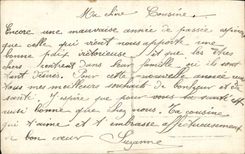 Ma chère Cousine
Encore une mauvaise année de passée espérons
que celle qui vient nous apporte une
bonne paix victorieuse et que les êtres
chers rentrent dans leur famille qui ils sont
tant désirés. Pour cette nouvelle année reçois
tous mes meilleurs souhaits de bonheur et de
santé. J'espère que chez vous la santé est
aussi bonne que chez nous. Ta cousine
qui t'aime et t'embrasse affectueusement
de bon cœur Suzanne